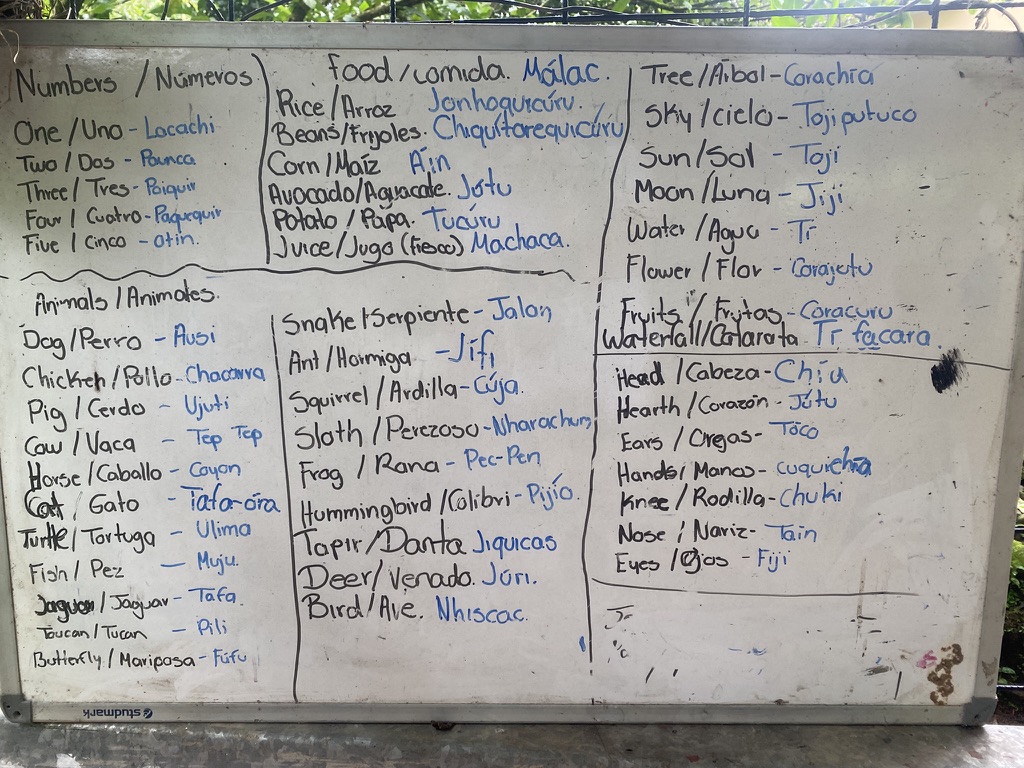 Numbers / Números
One / Uno - Lacachi
Two / Dos - Pounca
Three / Tres - Poiquir
Four / Cuatro - Paquequir
Five / Cinco - otin.
Food / comida. Málac.
Rice / Arroz Jonhoquicúru.
Beans/Frijoles. Chiquítarequicúru
Corn / Maíz Áin
Avocado/Aguacate. Jútu
Potato / Papa. Tucúru
Juice/Jugo (fresco) Machaca.
Tree / Árbol - Corachra
Sky / cielo - Tojiputuco
Sun / Sol - Toji
Moon / Luna - Jiji
Water / Agua - Tr
Flower / Flor - Corajutu
Fruits / Frutas - Coracuru
Waterfall/Catarata. Tr facara.
Animals / Animales.
Dog / Perro - Ausi
Chicken / Pollo - Chacarra
Pig / Cerdo - Ujuti
Cow / Vaca - Tep Tep
Horse / Caballo - Coyon
Cat / Gato - Tafa-óra
Turtle / Tortuga - Ulima
Fish / Pez - Muju.
Jaguar / Jaguar - Tafa
Toucan / Tucan - Pili
Butterfly / Mariposa - Fúfu
Snake / Serpiente - Jalan
Ant / Hormiga - Jífi
Squirrel / Ardilla - Cúja.
Sloth / Perezoso - Nharachun
Frog / Rana - Pec-Pen
Hummingbird / Colibri - Pijío.
Tapir / Danta Jiquicas
Deer / Venado. Júri.
Bird / Ave. Nhiscac.
Head / Cabeza - Chíu
Hearth / Corazón - Jútu
Ears / Orejas - Toco
Hands / Manos - cuquichia
Knee / Rodilla - Chuki
Nose / Nariz - Tain
Eyes / Ojos - Fiji
studmark